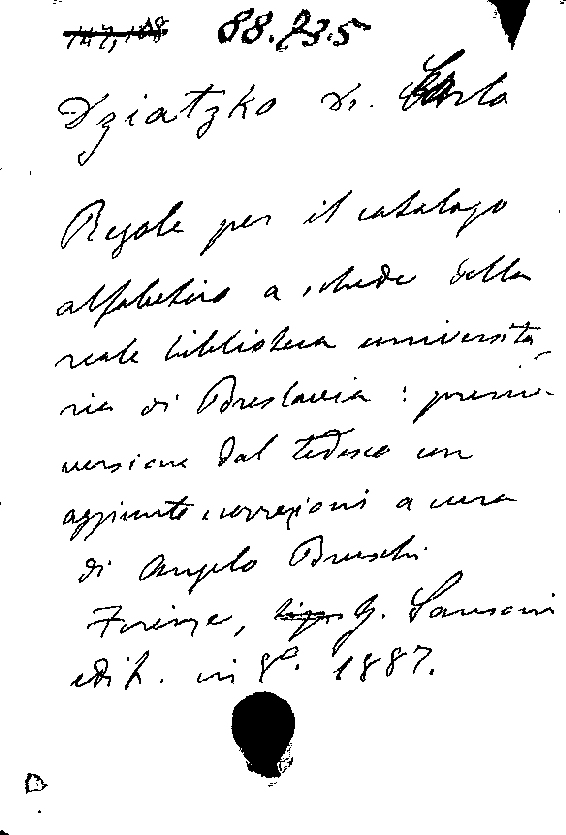 147,108 88.23.5
Dziatzko Dr. Carlo
Regole per il catalogo
alfabetico a schede della
reale biblioteca universita-
ria di Breslavia : prima
versione dal tedesco con
aggiunte e correzioni a cura
di Angelo Bruschi
Firenze, tipo G. Sansoni
edit. in 8°. 1887.
D